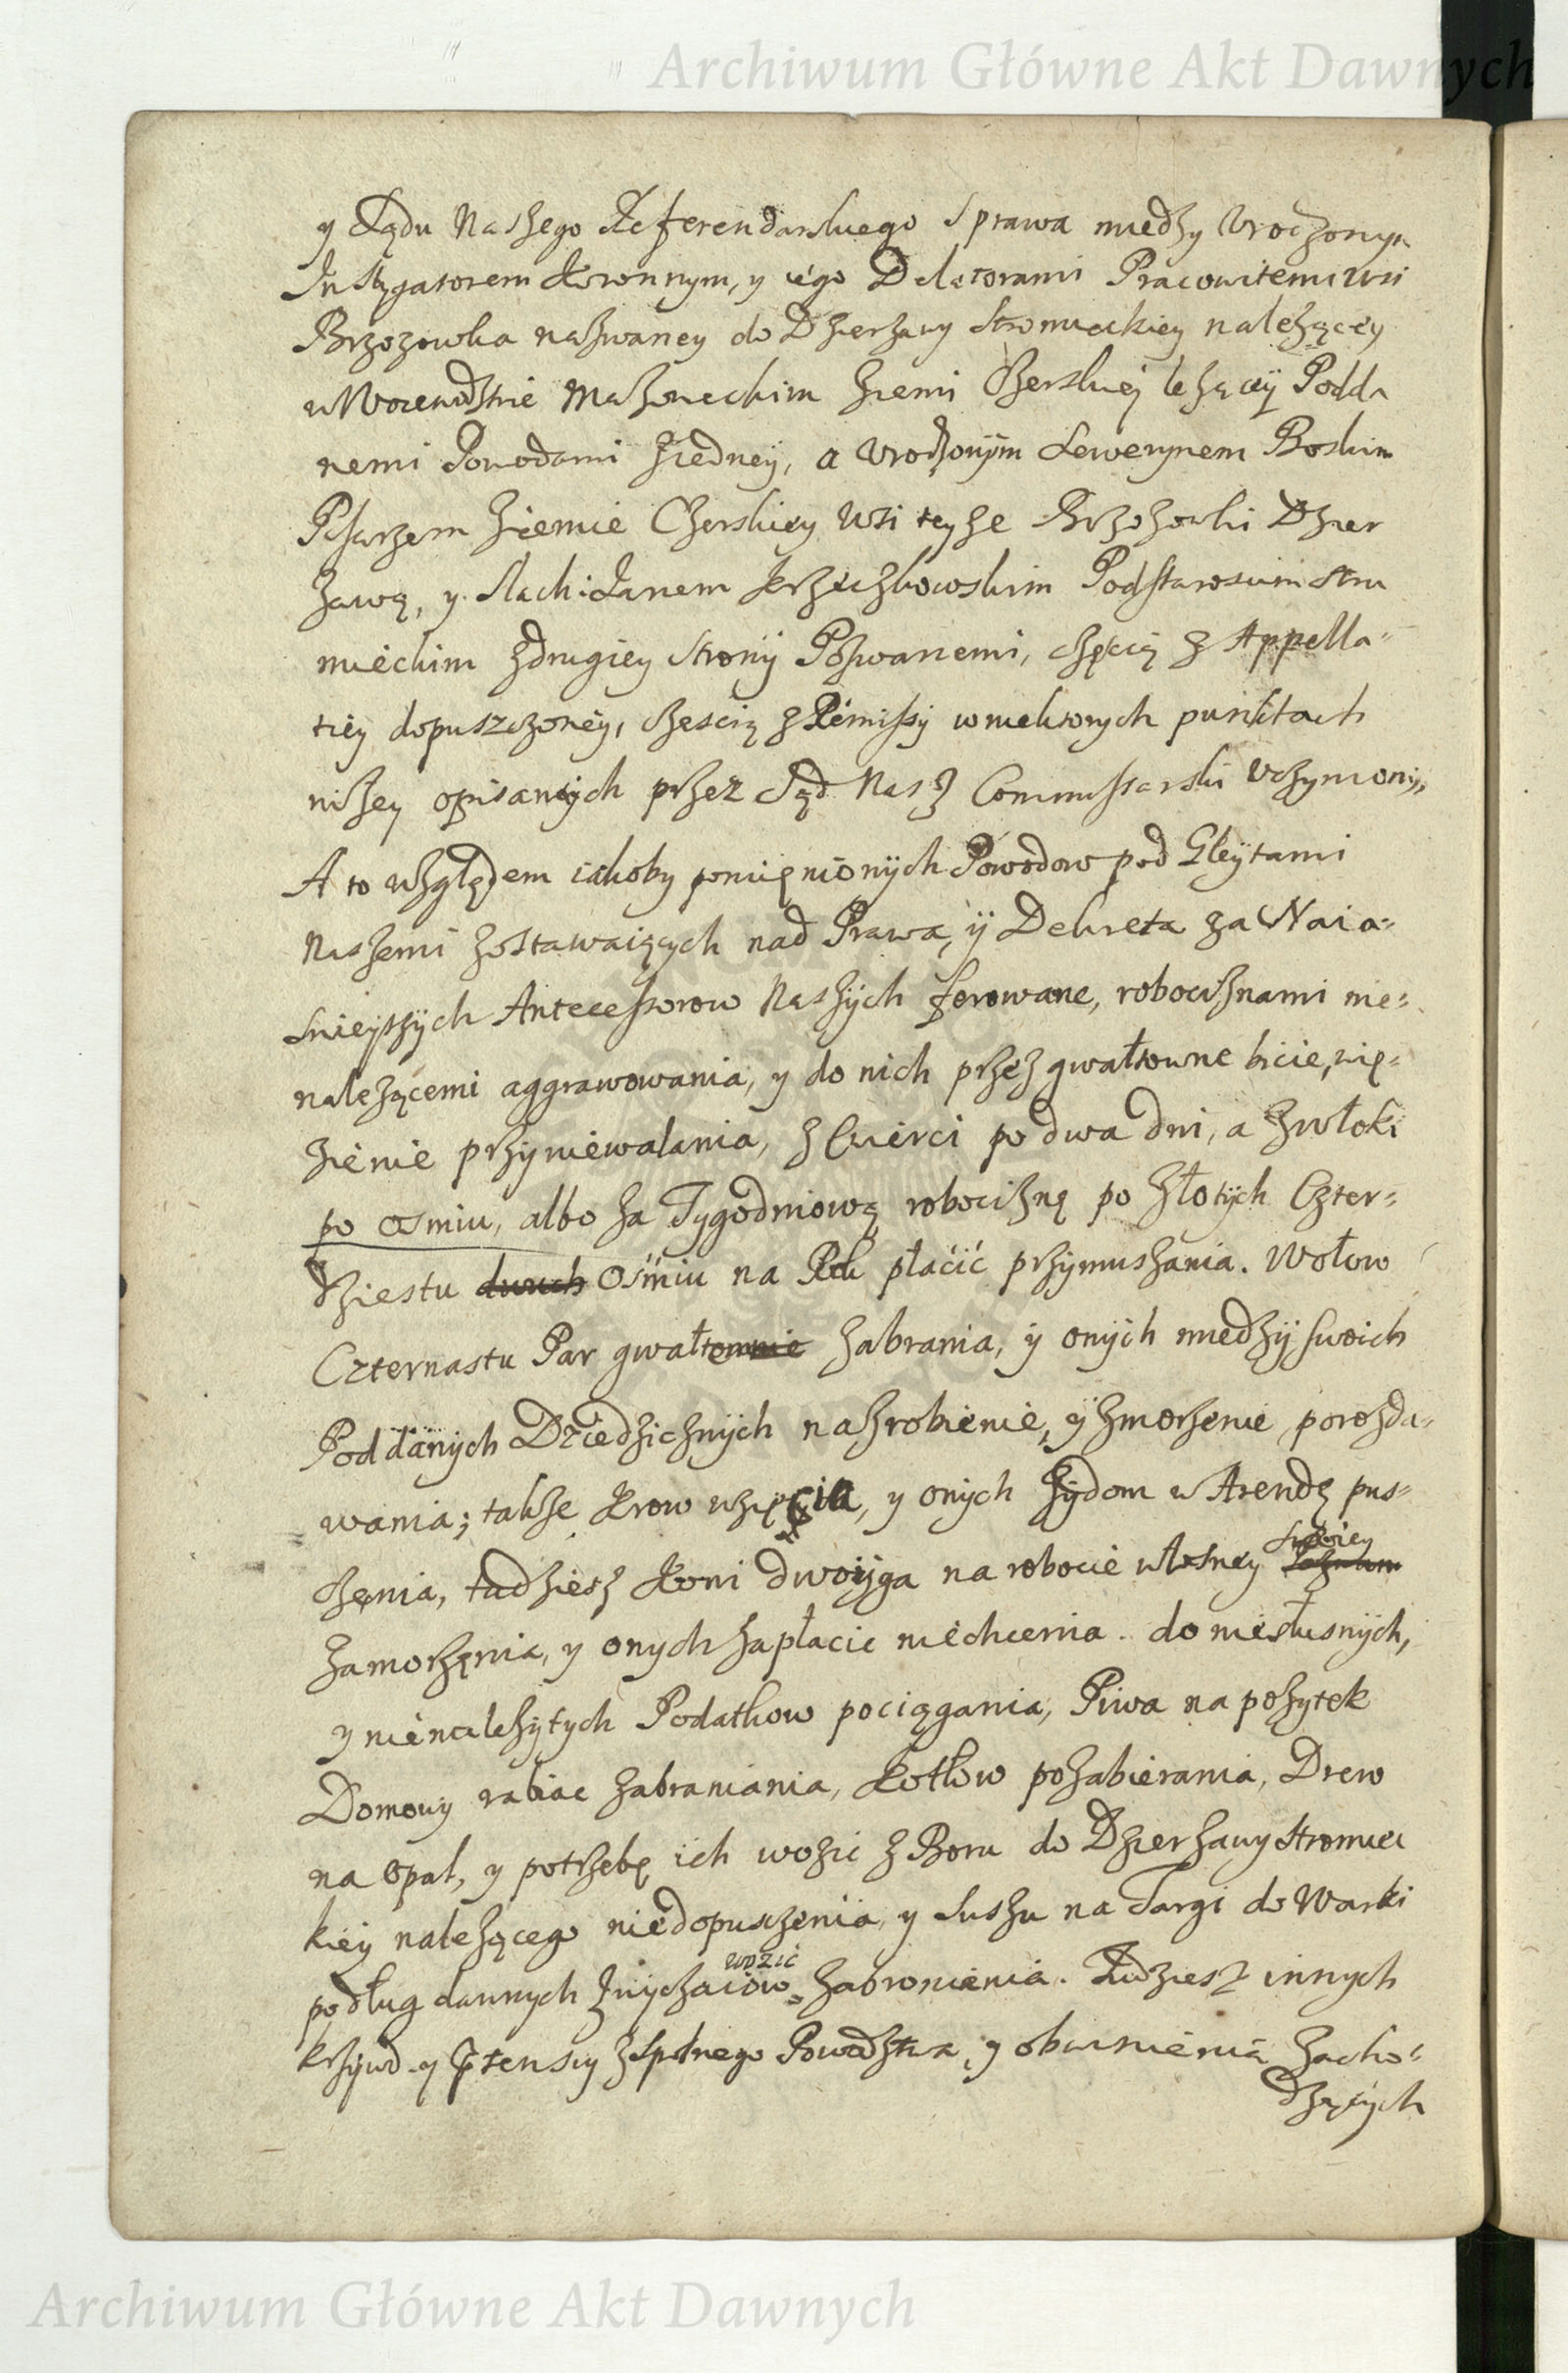 Archiwum Główne Akt Dawnych
y Sądu Naszego Referendarskiego Sprawa między Urodzonym
Instygatorem Koronnym, y iego Delatorami Pracowitemi Wsi
Brzozowka nazwaney do Dzierzawy Stromieckiey należącey
w Woiewodztwie Mazowieckim Ziemi Czerskiey leżącey Podda
nemi Powodami z iedney, a Urodzonym Sewerynem Boskim
Pisarzem Ziemie Czerskiey Wsi teyze Brzozowki Dzier
zawą, y Slach: Janem Krzeczkowskim Podstaroscim Stro
mieckim z drugiey Strony Pozwanemi, częscią z Appella=
tiey dopuszczoney, częscią z Remissy w niektorych punktach
niżey opisanych przez Sąd Nasz Commissarski Uczynioney,
A to względem iakoby pomięnionych Powodow pod Gleytami
Naszemi zostawaiących nad Prawa, y Dekreta za Naia=
snieyszych Antecessorow Naszych ferowane, robociznami nie=
należącemi aggrawowania, y do nich przez gwałtowne bicie, wię=
zienie przyniewalania, z Cwierci po dwa dni, a z włoki
po osmiu, albo za Tygodniową robociznę po Złotych Czter=
dziestu dwuch Osmiu na Rok płacić przymuszania. Wołow
Czternastu Par gwałtownie zabrania, y onych między swoich
Poddanych Dziedzicznych na zrobienie, y zmorzenie porozda=
wania; także Krow wzięcia, y onych Żydom w Arendę pus=
częnia, tudziesz Koni dwoyga na robocie własney swoiey
zamorzęnia, y onych zapłacic niechcenia. do niesłusnych,
y nienależytych Podatkow pociągania, Piwa na pożytek
Domowy rabiac zabraniania, Kotłow pozabierania, Drew
na opał, y potrzebę ich wozic z Boru do Dzierzawy Stromiec
kiey należącego niedopusczenia, y Suszu na Targi do Warki
podług dawnych zwyczaiow wozić zabronienia. Tudziesz innych
krzywd y Ptensiy z Spolnego Powodztwa, y obwinienia zacho=
dzących
Archiwum Główne Akt Dawnych